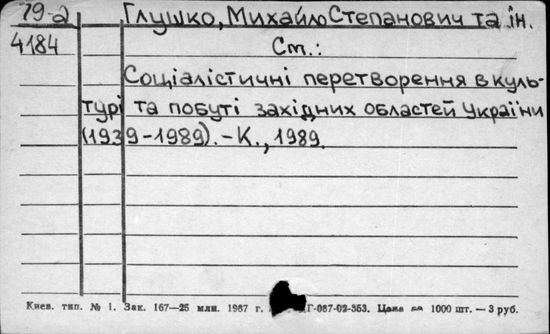 79-2 Глушко, Михайло Степанович та ін.
4184 Ст.:
Соціалістичні перетворення в куль-
турі та побуті західних областей України
(1939-1989). - К., 1989.
Киев. тип. № 1. Зак. 167—25 млн. 1987 г. Г-087-02-353. Цена за 1000 шт. — 3 руб.